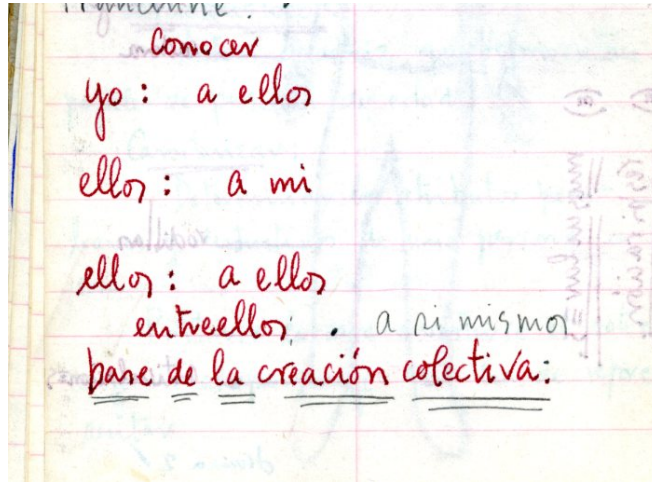 conocer
yo: a ellos
ellos: a mi
ellos: a ellos
entre ellos: . a si mismos
base de la creación colectiva: